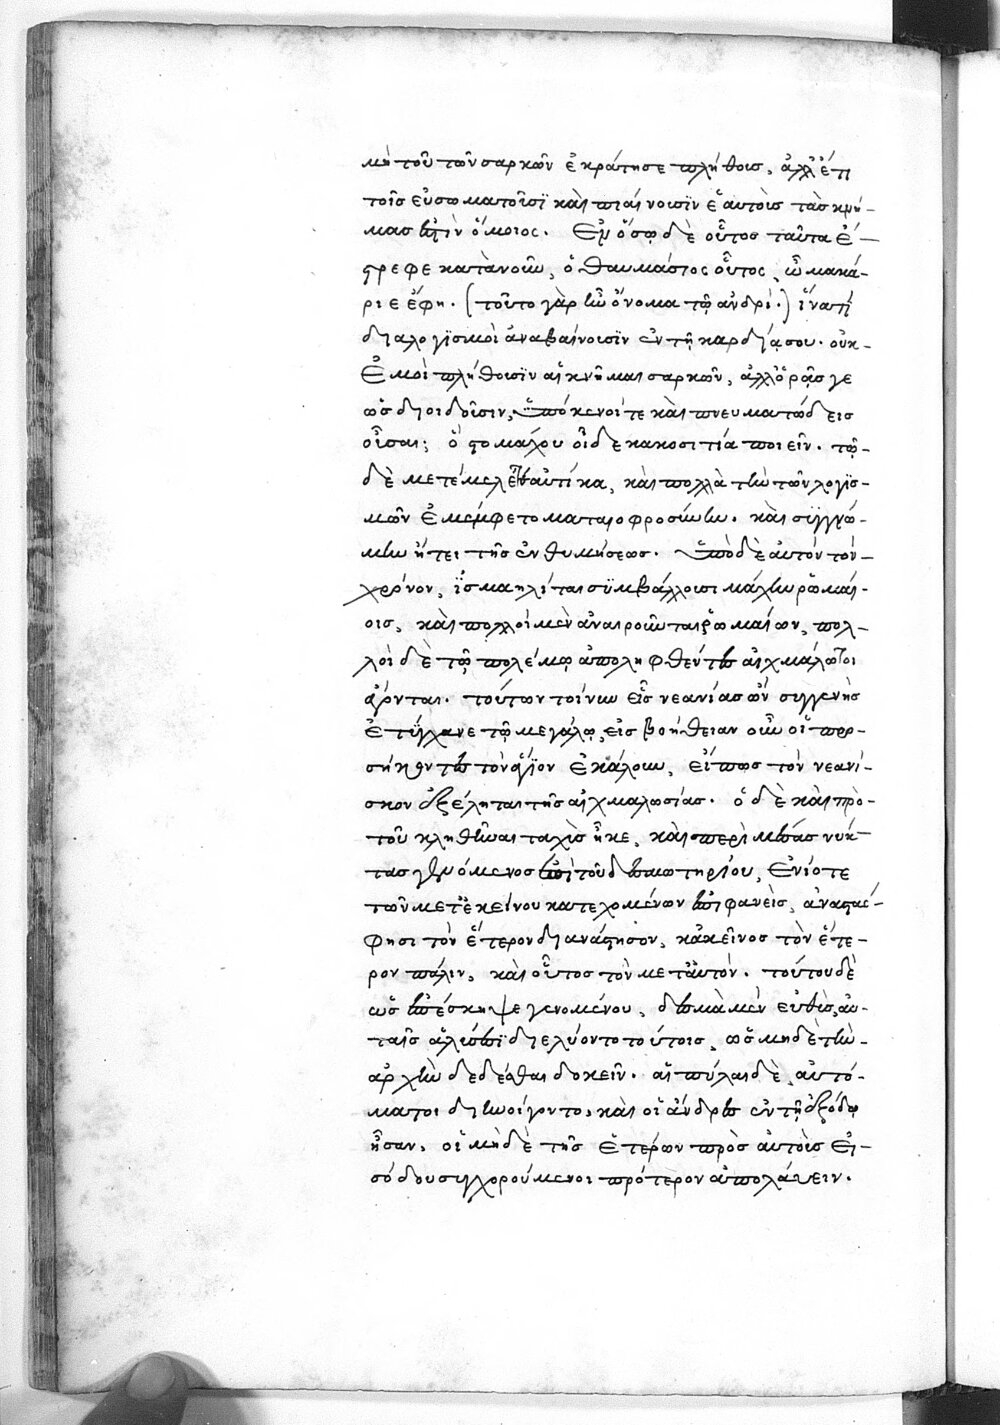 μὴ τοῦ τῶν σαρκῶν ἐκράτησε πλήθοις, ἀλλ' ἔτι
τοῖς εὐσωματοῦσϊ καὶ πιαίνουσϊν ἑαυτοὺς τὰς κνή-
μας ἐστὶν ὅμοιος. Ἐν ὅσῳ δὲ οὗτος ταῦτα ἔ-
στρεφε κατὰ νοῦν, ὁ θαυμάστος οὗτος, ὦ μακά-
ριε ἔφη. (τοῦτο γὰρ ἦν ὄνομα τῷ ἀνδρί.) ἵνα τί
διαλογϊσμοὶ ἀναβαίνουσϊν ἐν τῇ καρδίᾳ σου. οὐκ-
Ἐμοὶ πλήθουσϊν αἱ κνῆμαι σαρκῶν, ἀλλ' ὁρᾷς γε
ὡς διοιδοῦσιν, ὑπόκενοί τε καὶ πνευματώδεις
οὖσαι; ὁ στομάχου οἶδε κακοσιτία ποιεῖν. τῷ-
δὲ μετέμελεν ἐπαυτίκα, καὶ πολλὰ τὴν τῶν λογϊσ-
μῶν ἐμέμφετο ματαιοφροσύνην. καὶ συγγνώ-
μην ᾔτει τῆς ἐνθυμήσεως. Ὑπὸ δὲ αὐτὸν τὸν-
χρόνον, ἰσμαηλίται συμβάλλουσι μάχην ρωμαί-
οις, καὶ πολλοὶ μὲν ἀναιροῦνται ῥωμαίων, πολ-
λοὶ δὲ τῷ πολέμῳ ἀποληφθέντες αἰχμάλωτοι
ἄγονται. τούτων τοίνυν εἷς νεανίας ὢν συγγενὴς
ἐτύγχανε τῷ μεγάλῳ, εἰς βοήθειαν οὖν οἱ προ-
σήκοντες τὸν ἅγϊον ἐκάλουν, εἴπως τὸν νεανί-
σκον ἐξέληται τῆς αἰχμαλωσίας. ὁ δὲ καὶ πρὸ-
τοῦ κληθῆναι ταχὺς ἧκε, καὶ περὶ μέσας νύκ-
τας γενόμενος ἐπὶ τοῦ δεσμωτηρίου, Ἐνίοτε
τῶν μετ' ἐκείνου κατεχομένων ἐπιφανεὶς, ἀναστά-
φησι τὸν ἕτερον διανάστησον, κἀκεῖνος τὸν ἕτε-
ρον πάλιν, καὶ οὗτος τὸν μετ' αὐτόν. τούτου δὲ
ὡς ἐπέσκηψε γενομένου, δεσμὰ μὲν εὐθὺς, αὐ-
ταῖς ἁλύσεσϊ διελύοντο τούτοις, ὡς μηδὲ τὴν-
ἀρχὴν δεδέσθαι δοκεῖν. αἱ πύλαι δὲ, αὐτό-
ματοι διηνοίγοντο, καὶ οἱ ἄνδρες ἐν τῇ ἐξόδῳ
ἦσαν, οἱ μηδὲ τῆς ἑτέρων πρὸς αὐτοὺς εἰ-
σόδου συγχορούμενοι πρότερον ἀπολάυειν.